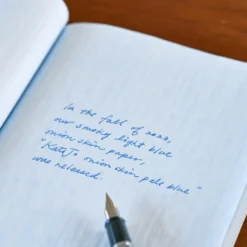 In the fall of 2022,
our smoky light blue
onion skin paper,
onion skin pale blue"
was released.